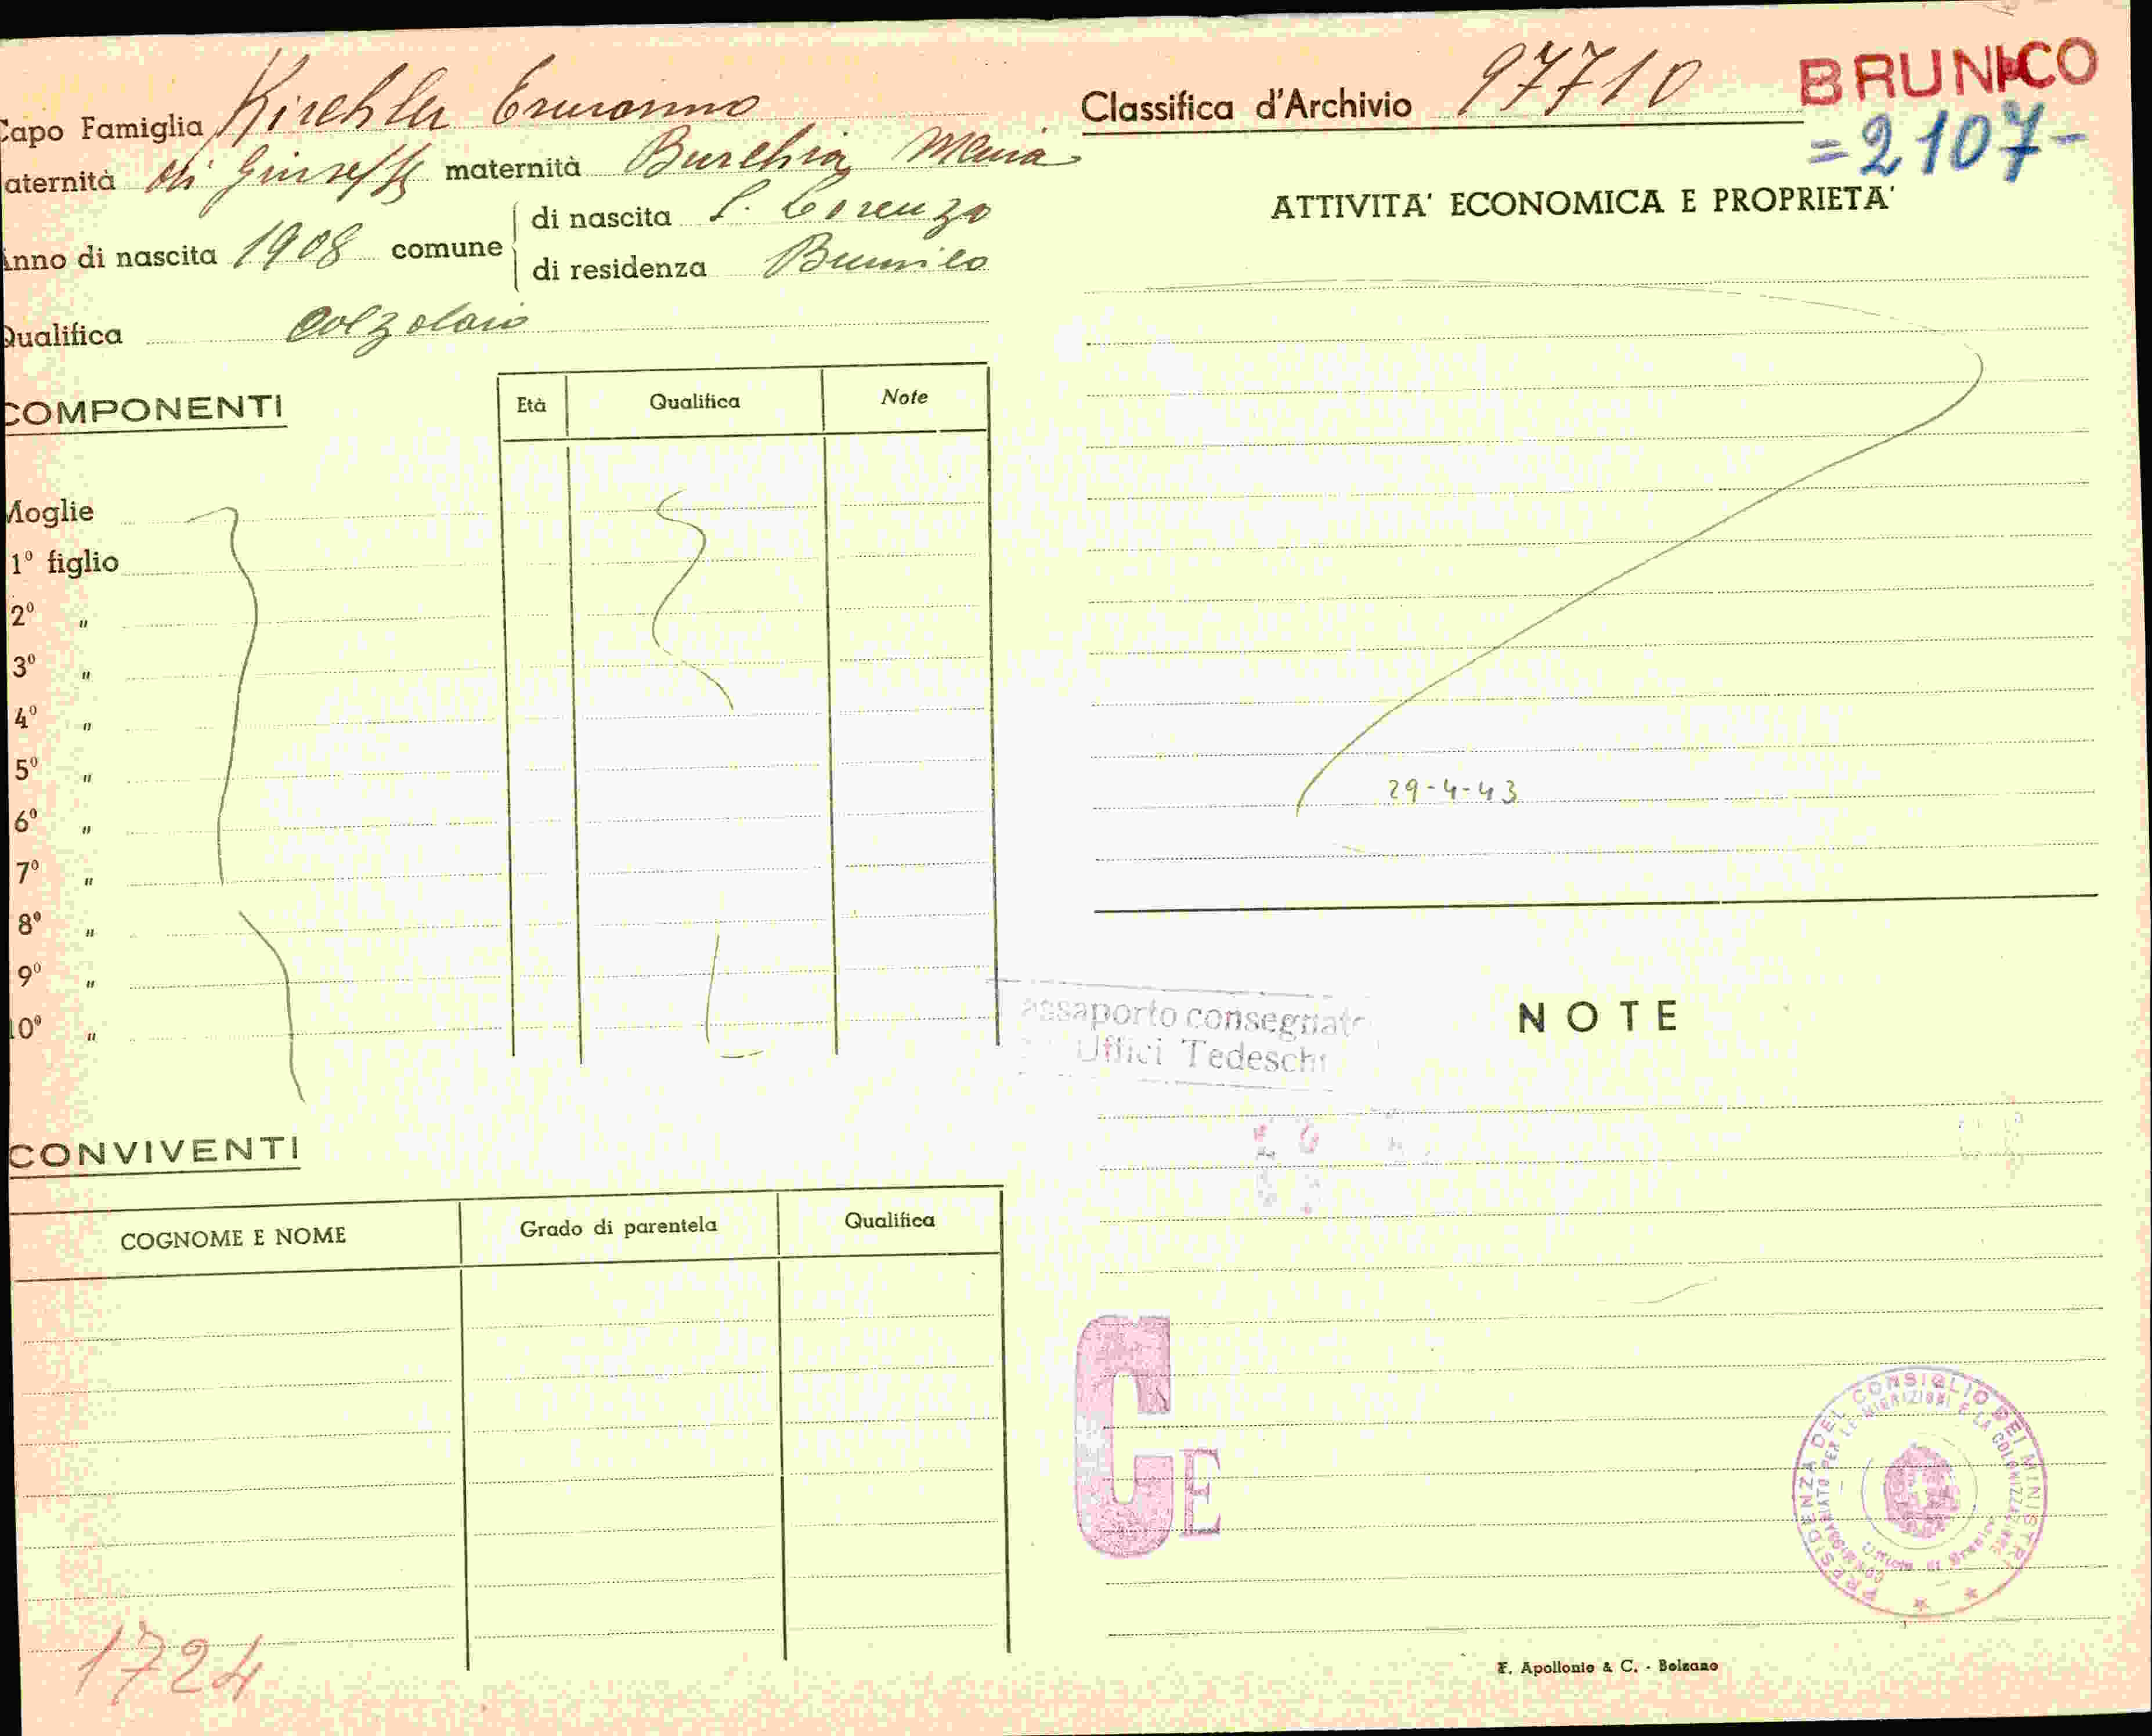 Capo Famiglia Kirchler Ermanno
aternità di Giuseppe maternità Burchia Maria
Anno di nascita 1908 comune
di nascita S. Lorenzo
di residenza Brunico
Qualifica calzolaio
COMPONENTI
Età Qualifica Note
Moglie
1º figlio
2º "
3º "
4º "
5º "
6º "
7º "
8º "
9º "
10º "
CONVIVENTI
COGNOME E NOME Grado di parentela Qualifica
1724
Classifica d'Archivio 97710
BRUNICO
=2107-
ATTIVITA' ECONOMICA E PROPRIETA'
29-4-43
assaporto consegnato
Uffici Tedeschi
NOTE
CE
PRESIDENZA DEL CONSIGLIO DEI MINISTRI
COMMISSARIATO PER LE MIGRAZIONI E LA COLONIZZAZIONE
Ufficio di Brunico
F. Apollonio & C. - Bolzano